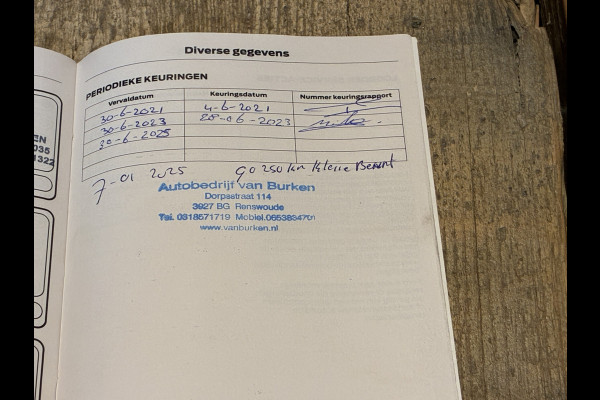 Diverse gegevens
PERIODIEKE KEURINGEN
Vervaldatum Keuringsdatum Nummer keuringsrapport
30-6-2021 4-6-2021
30-6-2023 28-06-2023
30-6-2025
7-01 2025 90250 km kleine Beurt
Autobedrijf van Burken
Dorpsstraat 114
3927 BG Renswoude
Tel. 0318571719 Mobiel.0653834701
www.vanburken.nl
EN
035
1322